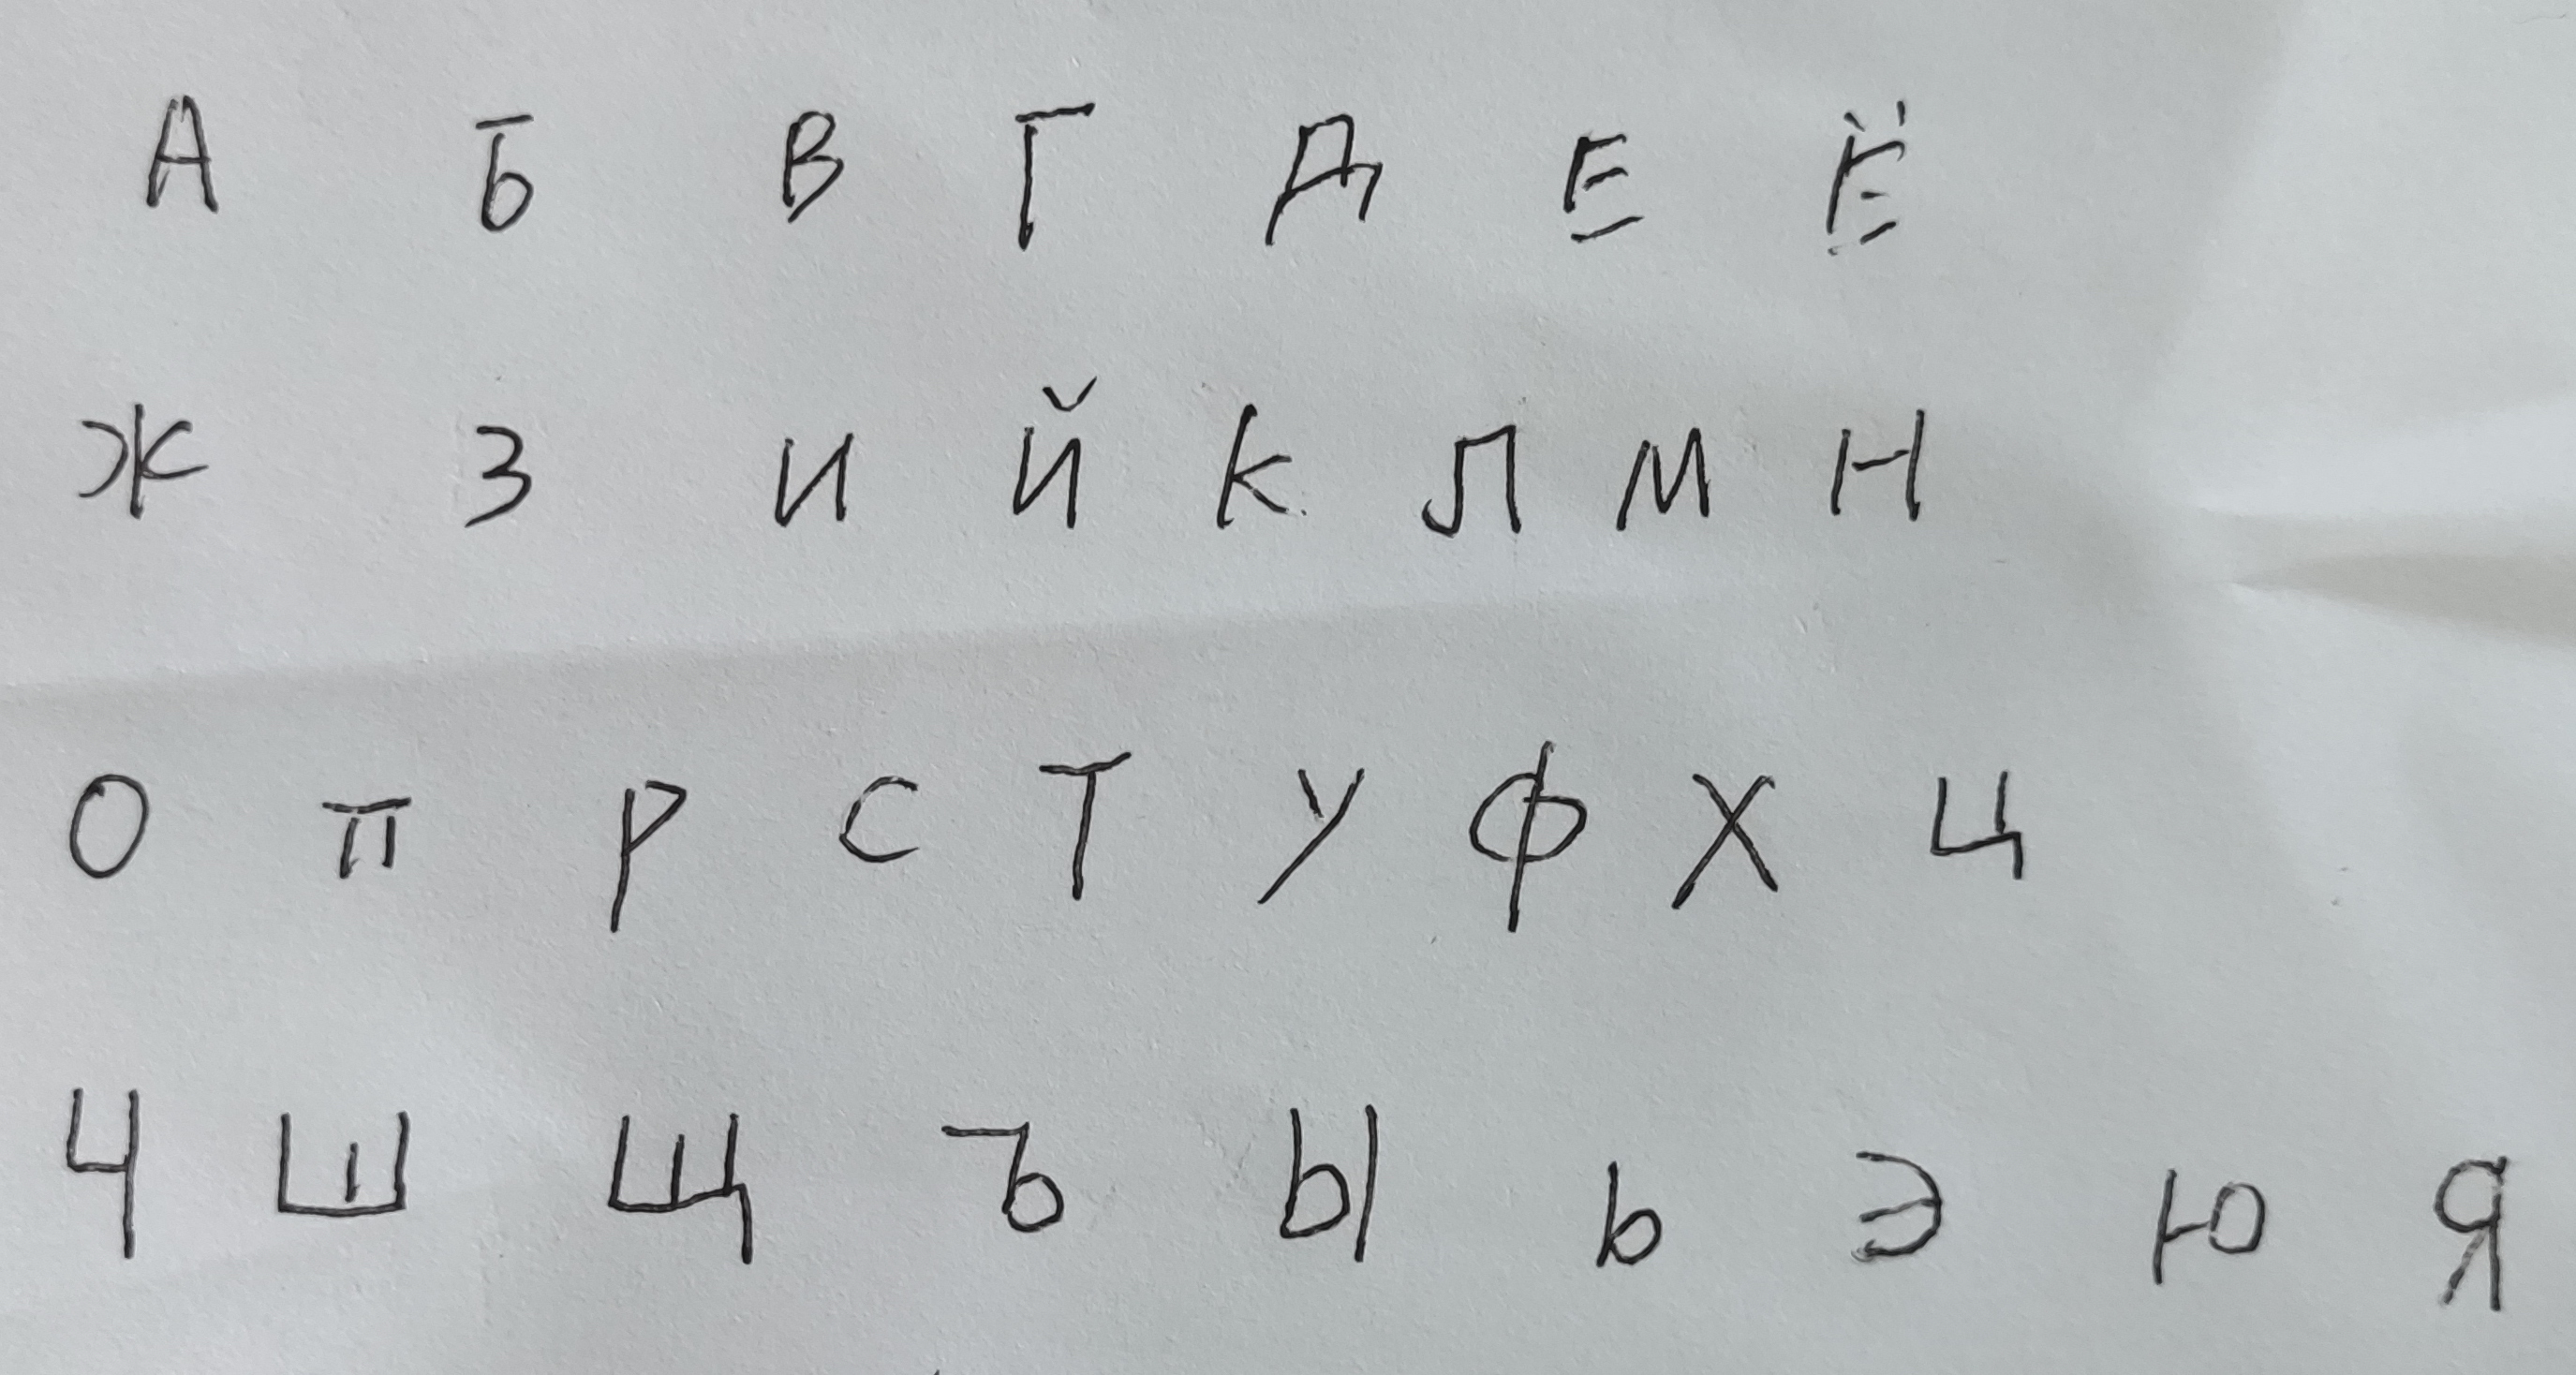 А Б В Г Д Е Ё
Ж З И Й К Л М Н
О П Р С Т У Ф Х Ц
Ч Ш Щ Ъ Ы Ь Э Ю Я